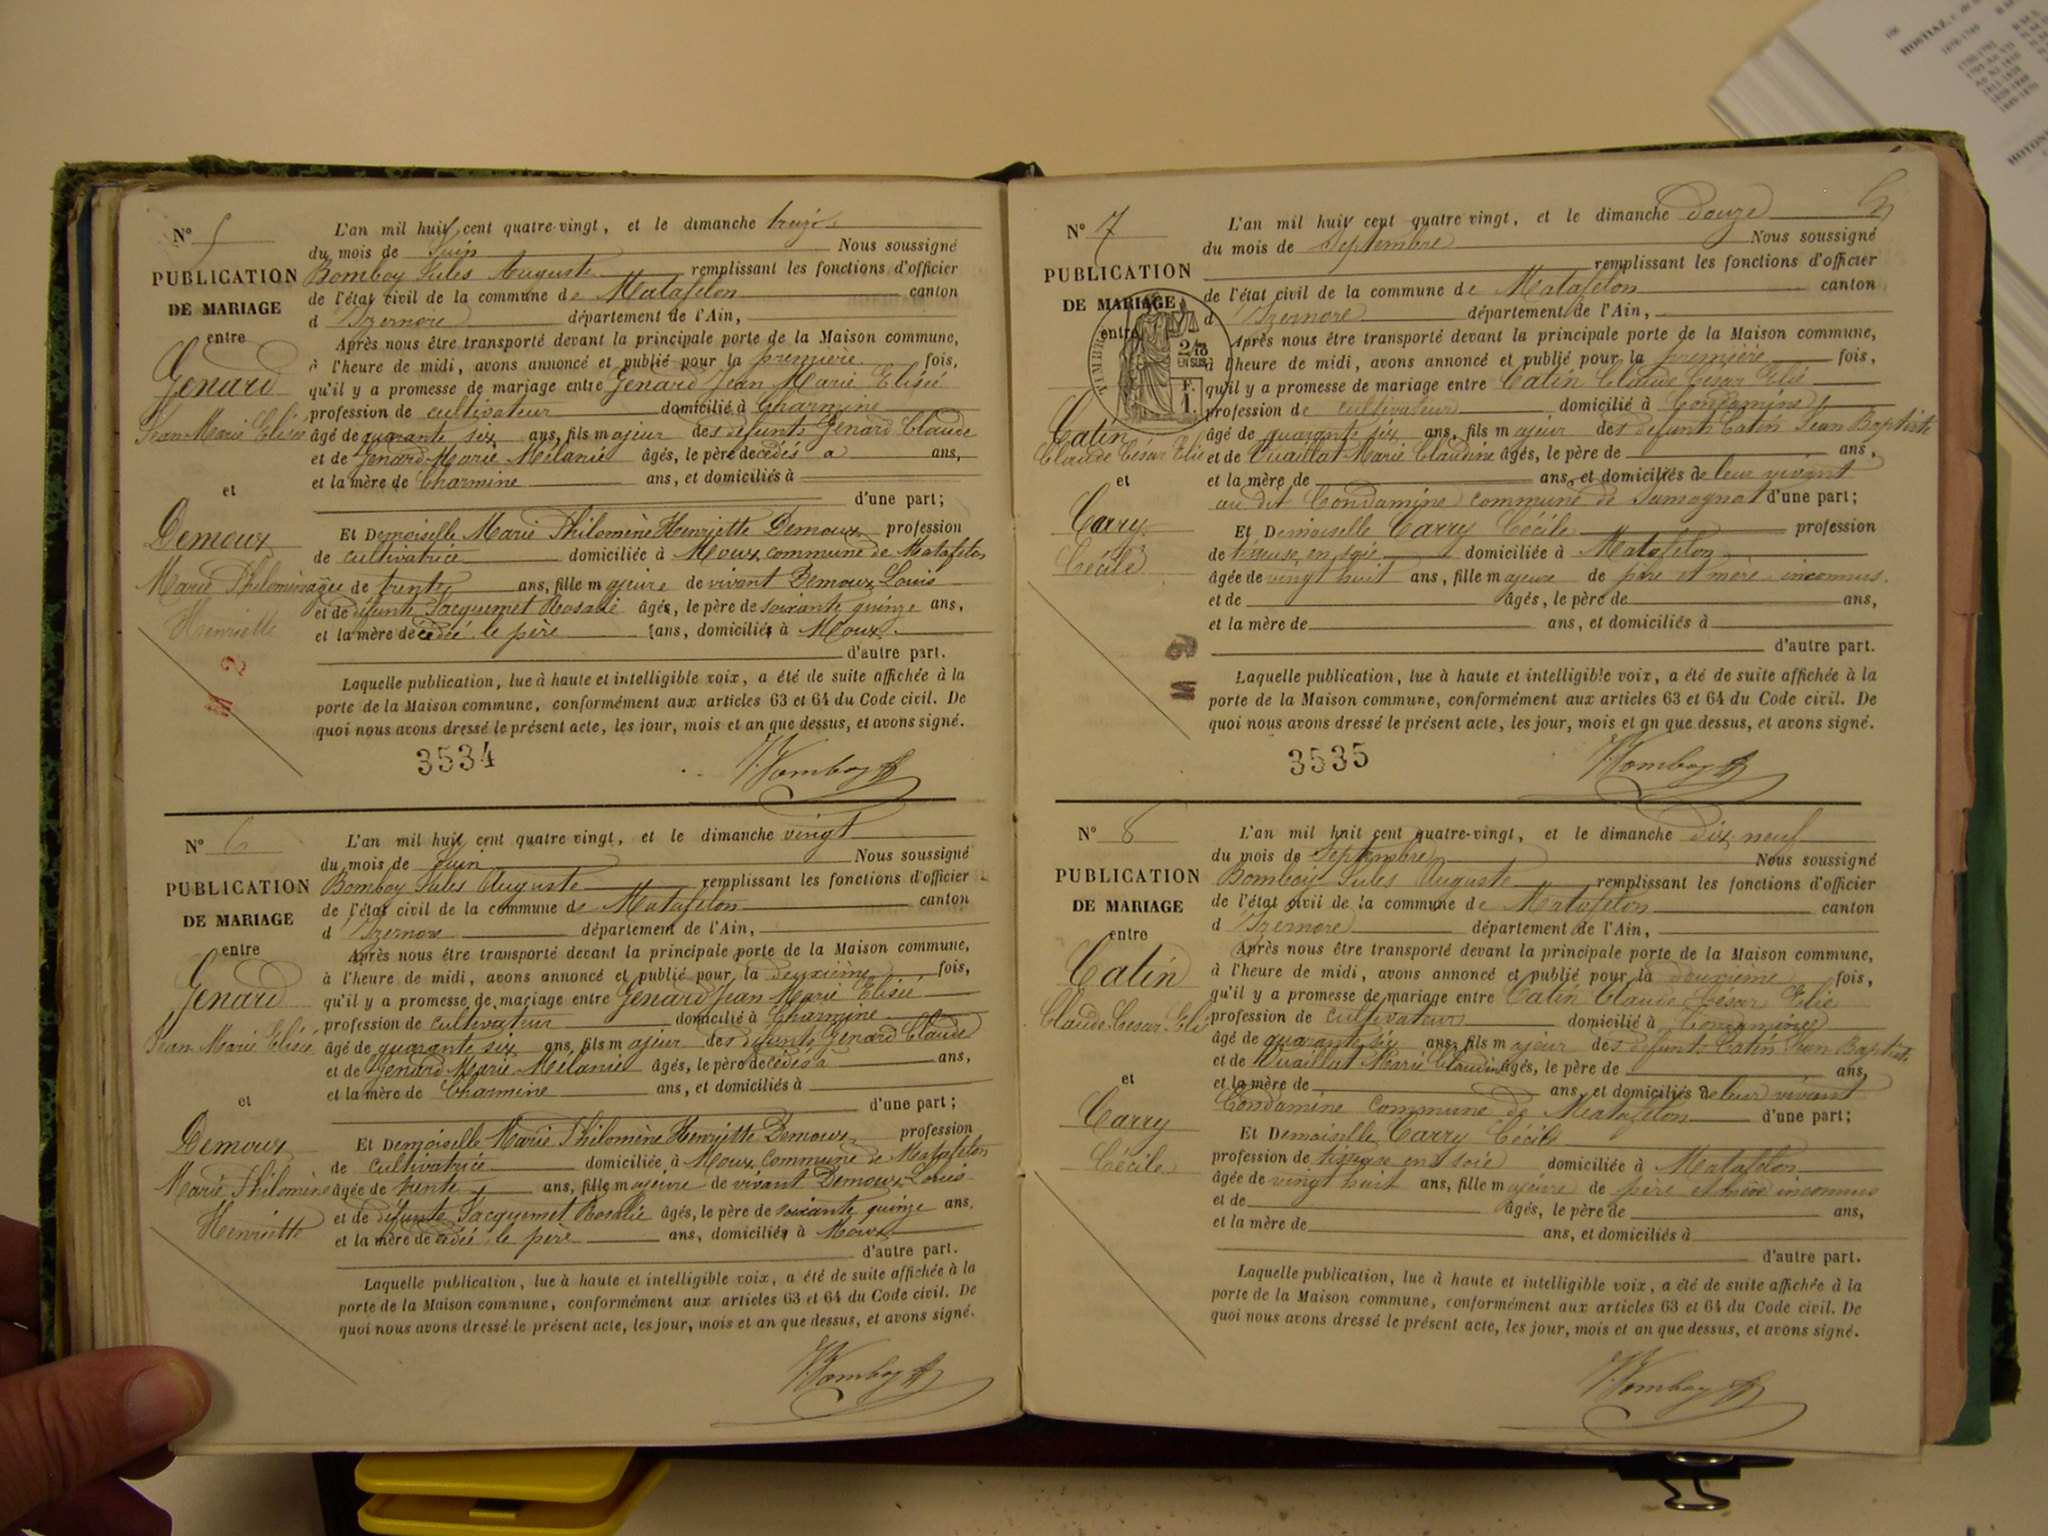 N° 5
PUBLICATION
DE MARIAGE
entre
Genard
Jean Marie Elisée
et
Demoux
Marie Philomène
Henriette
L'an mil huit cent quatre-vingt, et le dimanche treize
du mois de Juin Nous soussigné
Bomboy Jules Auguste remplissant les fonctions d'officier
de l'état civil de la commune de Matafelon canton
d'Izernore département de l'Ain,
Après nous être transporté devant la principale porte de la Maison commune,
à l'heure de midi, avons annoncé et publié pour la première fois,
qu'il y a promesse de mariage entre Genard Jean Marie Elisée
profession de cultivateur domicilié à Charmine
âgé de quarante six ans, fils majeur des défunts Genard Claude
et de Genard Marie Mélanie âgés, le père decédés a ans,
et la mère de Charmine ans, et domiciliés à
d'une part;
Et Demoiselle Marie Philomène Henriette Demoux profession
de cultivatrice domiciliée à Moux commune de Matafelon
âgée de trente ans, fille majeure de vivant Demoux Louis
et de défunte Jacquemet Rosalie âgés, le père de soixante quinze ans,
et la mère décédée le père ans, domiciliés à Moux
d'autre part.
Laquelle publication, lue à haute et intelligible voix, a été de suite affichée à la
porte de la Maison commune, conformément aux articles 63 et 64 du Code civil. De
quoi nous avons dressé le présent acte, les jour, mois et an que dessus, et avons signé.
M 2
3534
Bomboy
N° 6
PUBLICATION
DE MARIAGE
entre
Genard
Jean Marie Elisée
et
Demoux
Marie Philomène
Henriette
L'an mil huit cent quatre-vingt, et le dimanche vingt
du mois de Juin Nous soussigné
Bomboy Jules Auguste remplissant les fonctions d'officier
de l'état civil de la commune de Matafelon canton
d'Izernore département de l'Ain,
Après nous être transporté devant la principale porte de la Maison commune,
à l'heure de midi, avons annoncé et publié pour la deuxième fois,
qu'il y a promesse de mariage entre Genard Jean Marie Elisée
profession de cultivateur domicilié à Charmine
âgé de quarante six ans, fils majeur des défunts Genard Claude
et de Genard Marie Mélanie âgés, le père decédés à ans,
et la mère de Charmine ans, et domiciliés à
d'une part;
Et Demoiselle Marie Philomène Henriette Demoux profession
de cultivatrice domiciliée à Moux commune de Matafelon
âgée de trente ans, fille majeure de vivant Demoux Louis
et de défunte Jacquemet Rosalie âgés, le père de soixante quinze ans,
et la mère décédée le père ans, domiciliés à Moux
d'autre part.
Laquelle publication, lue à haute et intelligible voix, a été de suite affichée à la
porte de la Maison commune, conformément aux articles 63 et 64 du Code civil. De
quoi nous avons dressé le présent acte, les jour, mois et an que dessus, et avons signé.
Bomboy
N° 7
PUBLICATION
DE MARIAGE
entre
TIMBRE
2/10
EN SUS
F.
1.
Catin
Claude César Elie
et
Carry
Cécile
L'an mil huit cent quatre-vingt, et le dimanche douze
du mois de Septembre Nous soussigné
remplissant les fonctions d'officier
de l'état civil de la commune de Matafelon canton
d'Izernore département de l'Ain,
Après nous être transporté devant la principale porte de la Maison commune,
à l'heure de midi, avons annoncé et publié pour la première fois,
qu'il y a promesse de mariage entre Catin Claude César Elie
profession de cultivateur domicilié à Condamine
âgé de quarante six ans, fils majeur des défunts Catin Jean Baptiste
et de Vuaillat Marie Claudine âgés, le père de ans,
et la mère de ans, et domiciliés de leur vivant
au dit Condamine commune de Samognat d'une part;
Et Demoiselle Carry Cécile profession
de tisseuse en soie domiciliée à Matafelon
âgée de vingt huit ans, fille majeure de père et mère inconnus
et de âgés, le père de ans,
et la mère de ans, et domiciliés à
d'autre part.
Laquelle publication, lue à haute et intelligible voix, a été de suite affichée à la
porte de la Maison commune, conformément aux articles 63 et 64 du Code civil. De
quoi nous avons dressé le présent acte, les jour, mois et an que dessus, et avons signé.
3535
Bomboy
N° 8
PUBLICATION
DE MARIAGE
entre
Catin
Claude César Elie
et
Carry
Cécile
L'an mil huit cent quatre-vingt, et le dimanche dix neuf
du mois de Septembre Nous soussigné
Bomboy Jules Auguste remplissant les fonctions d'officier
de l'état civil de la commune de Matafelon canton
d'Izernore département de l'Ain,
Après nous être transporté devant la principale porte de la Maison commune,
à l'heure de midi, avons annoncé et publié pour la deuxième fois,
qu'il y a promesse de mariage entre Catin Claude César Elie
profession de cultivateur domicilié à Condamine
âgé de quarante six ans, fils majeur des défunts Catin Jean Baptiste
et de Vuaillat Marie Claudine âgés, le père de ans,
et la mère de ans, et domiciliés de leur vivant
Condamine commune de Matafelon d'une part;
Et Demoiselle Carry Cécile
profession de tisseuse en soie domiciliée à Matafelon
âgée de vingt huit ans, fille majeure de père et mère inconnus
et de âgés, le père de ans,
et la mère de ans, et domiciliés à
d'autre part.
Laquelle publication, lue à haute et intelligible voix, a été de suite affichée à la
porte de la Maison commune, conformément aux articles 63 et 64 du Code civil. De
quoi nous avons dressé le présent acte, les jour, mois et an que dessus, et avons signé.
Bomboy